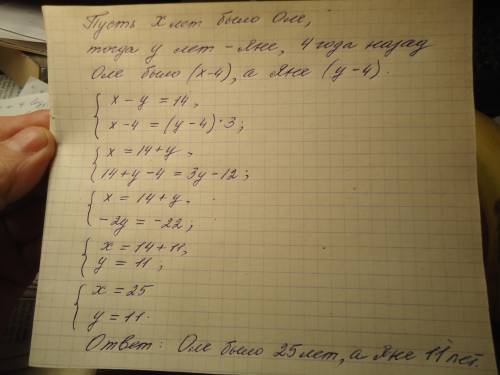 Пусть x лет было Оле,
тогда y лет - Яне, 4 года назад
Оле было (x-4), а Яне (y-4).
x - y = 14,
x-4 = (y-4)·3;
x = 14+y,
14+y-4 = 3y-12;
x = 14+y,
-2y = -22;
x = 14+11,
y = 11;
x = 25
y = 11.
Ответ: Оле было 25 лет, а Яне 11 лет.